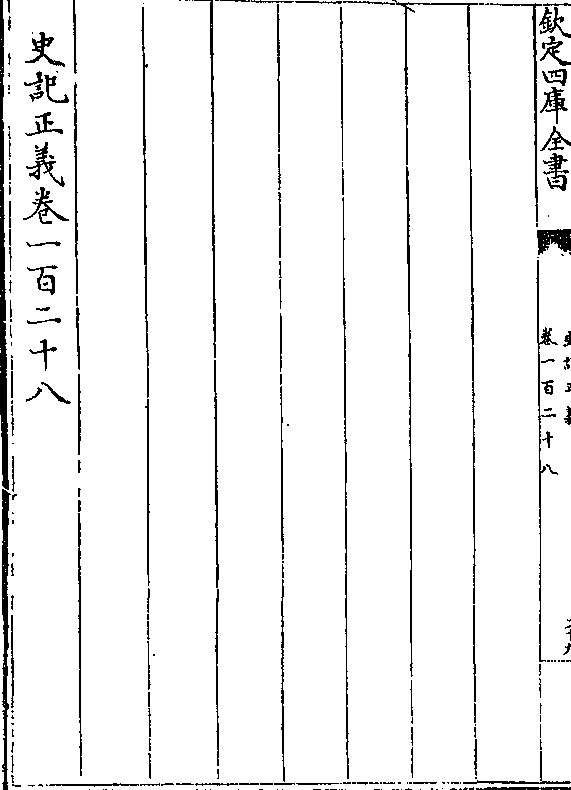 欽定四庫全書
史記正義
卷一百二十八
史記正義卷一百二十八